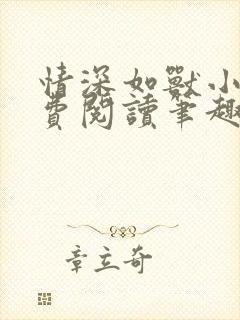 情深如獸小
費閱讀筆趣
章立奇